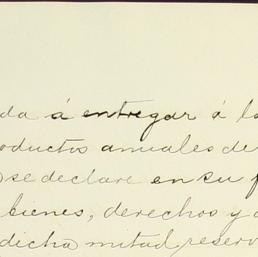 da á entregar á
oductos anuales de
se declare en su
bienes, derechos y
dicha mitad reserv